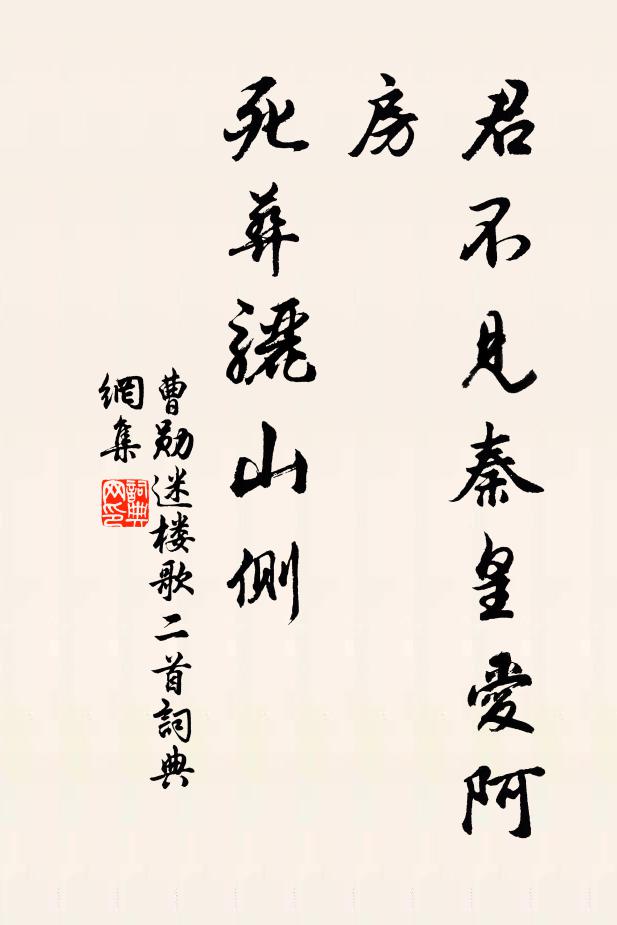 君不見秦皇愛阿
房
死葬驪山側
曹勋迷楼歌二首詞典
網集
詞典
网印